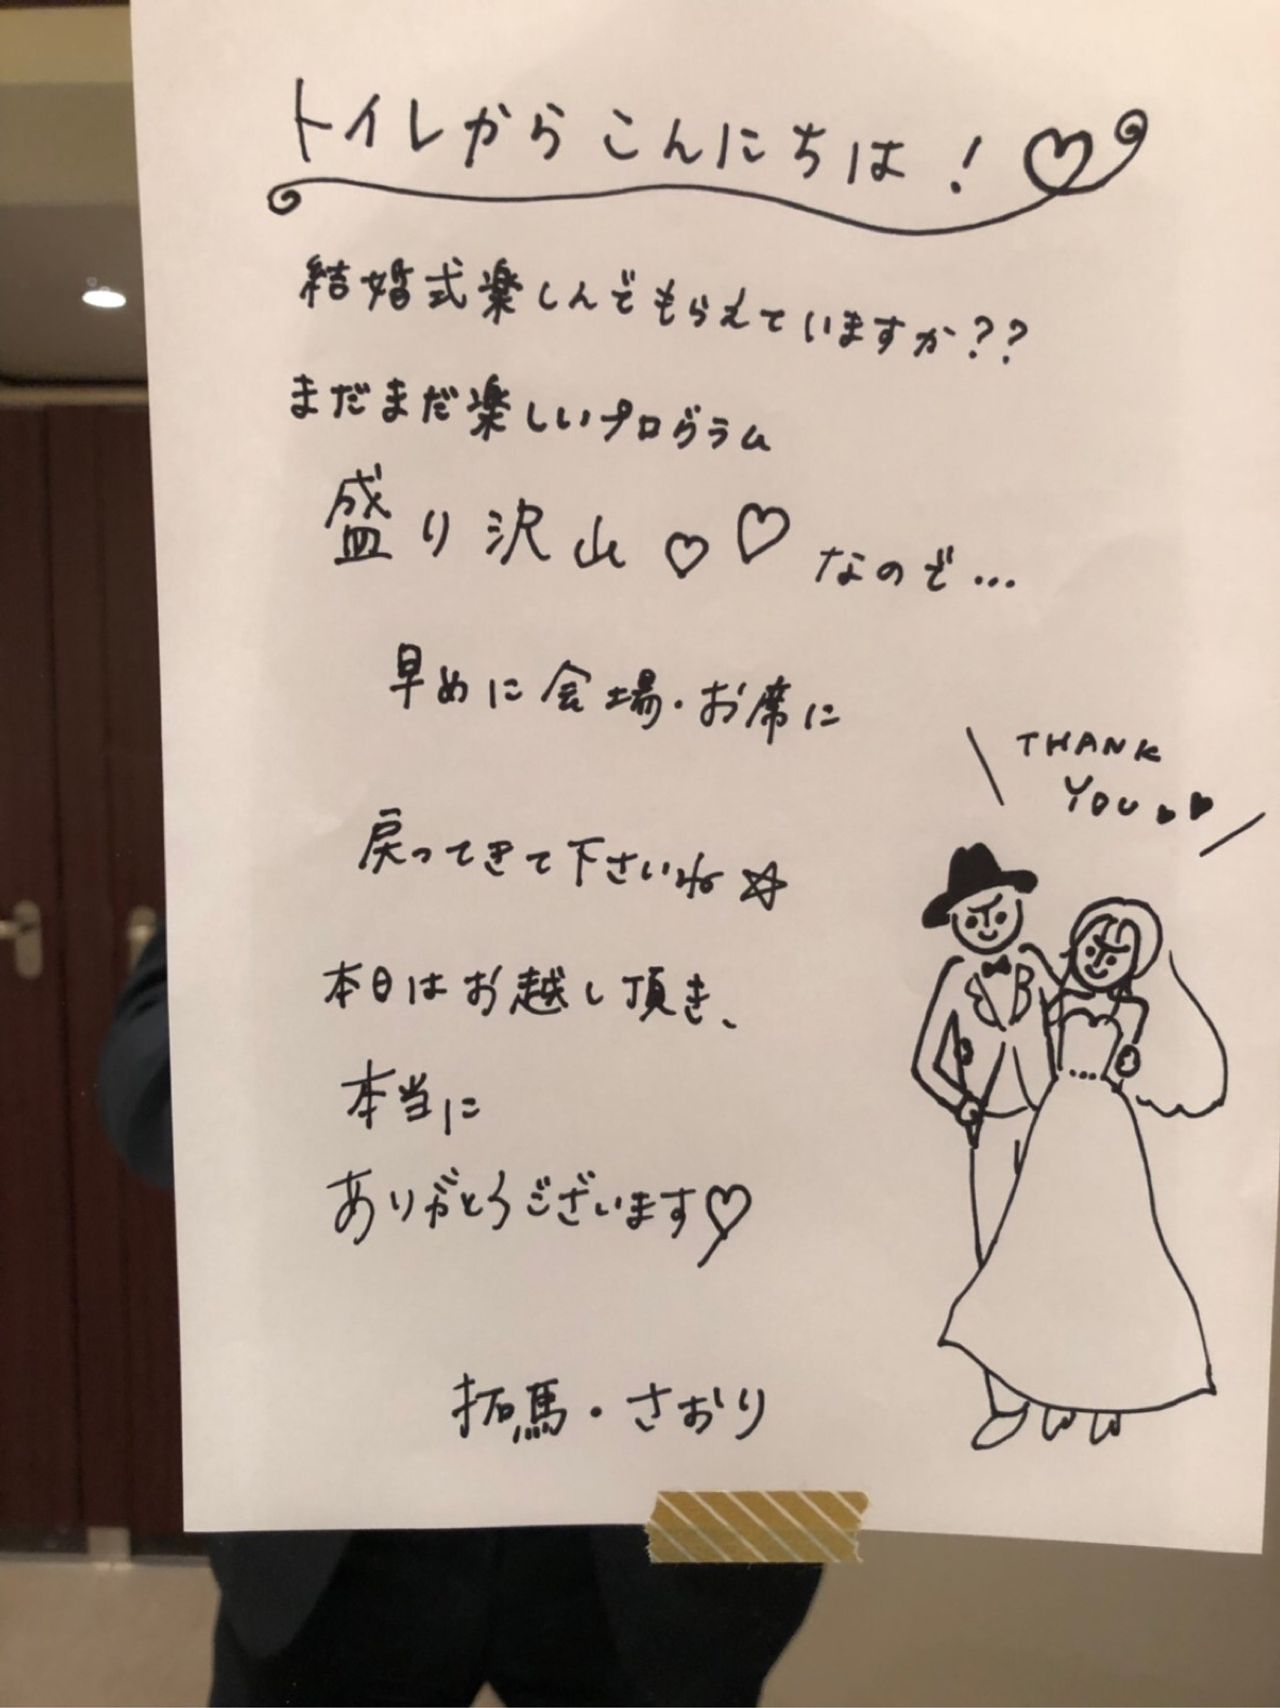 トイレからこんにちは！♡
結婚式楽しんでもらえていますか？？
まだまだ楽しいプログラム
盛り沢山♡♡なので…
早めに会場・お席に
戻ってきて下さいね☆
本日はお越し頂き、
本当に
ありがとうございます♡
拓馬・さおり
THANK
YOU♥♥